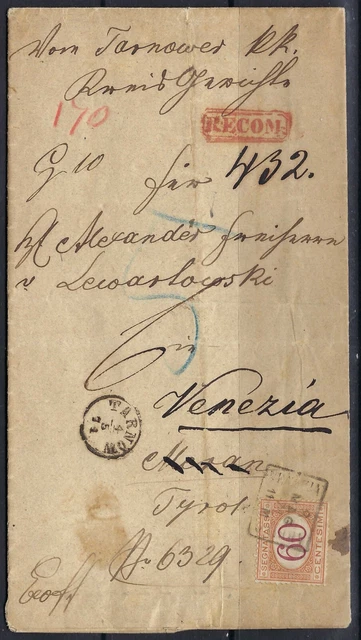 Vom Tarnower kk.
Kreis Gerichte
190
RECOM.
G 10
für 432.
Alexander Freiherrn
v Lewartowski
in
Venezia
TARNOW
4
5
Meran
Tyrol
VENEZIA
SEGNATASSE
60
CENTESIMI
No 6329.